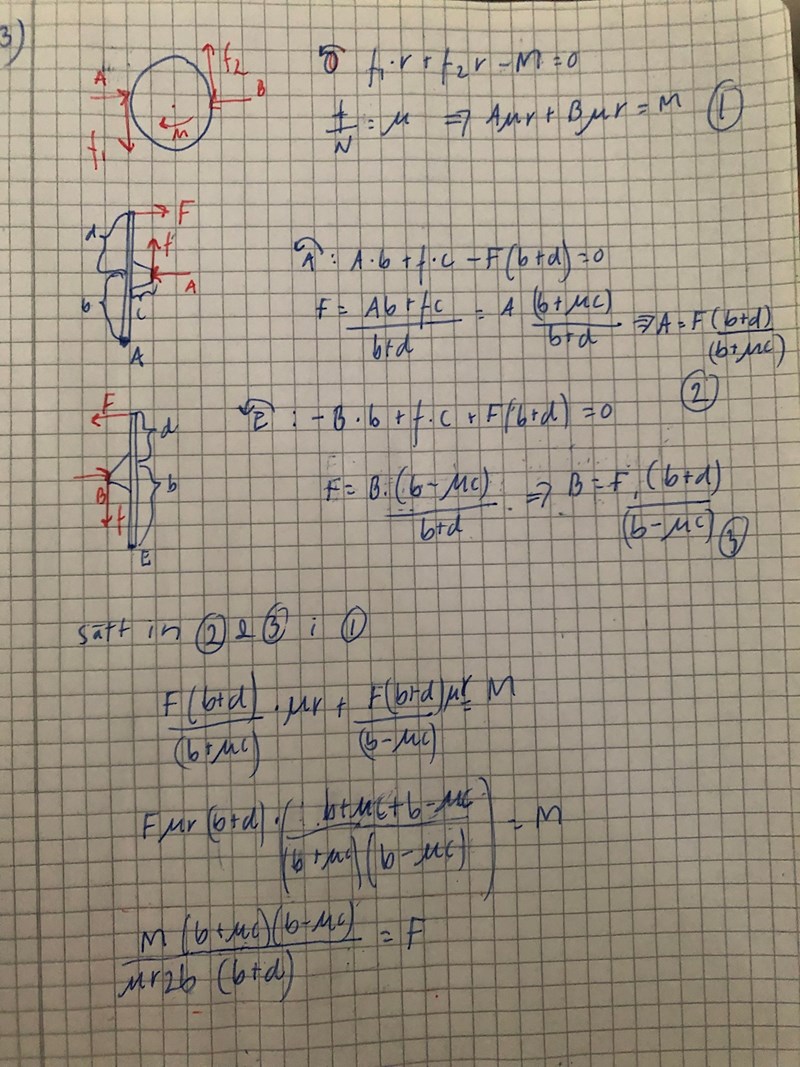 3)
A f₂ B M f₁
↶O f₁·r + f₂r - M = 0
f/N = μ ⇒ Aμr + Bμr = M ①
F d f A b c A
↶A: A·b + f·c - F(b+d) = 0
F = (Ab + fc)/(b+d) = A (b+μc)/(b+d) ⇒ A = F (b+d)/(b+μc)
②
F d B b f E
↶E: -B·b + f·c + F(b+d) = 0
F = B·(b-μc)/(b+d) ⇒ B = F·(b+d)/(b-μc) ③
sätt in ② & ③ i ①
F(b+d)/(b+μc) · μr + F(b+d)μr/(b-μc) = M
Fμr(b+d)·((b+μc+b-μc)/((b+μc)(b-μc))) = M
M(b+μc)(b-μc)/(μr2b(b+d)) = F